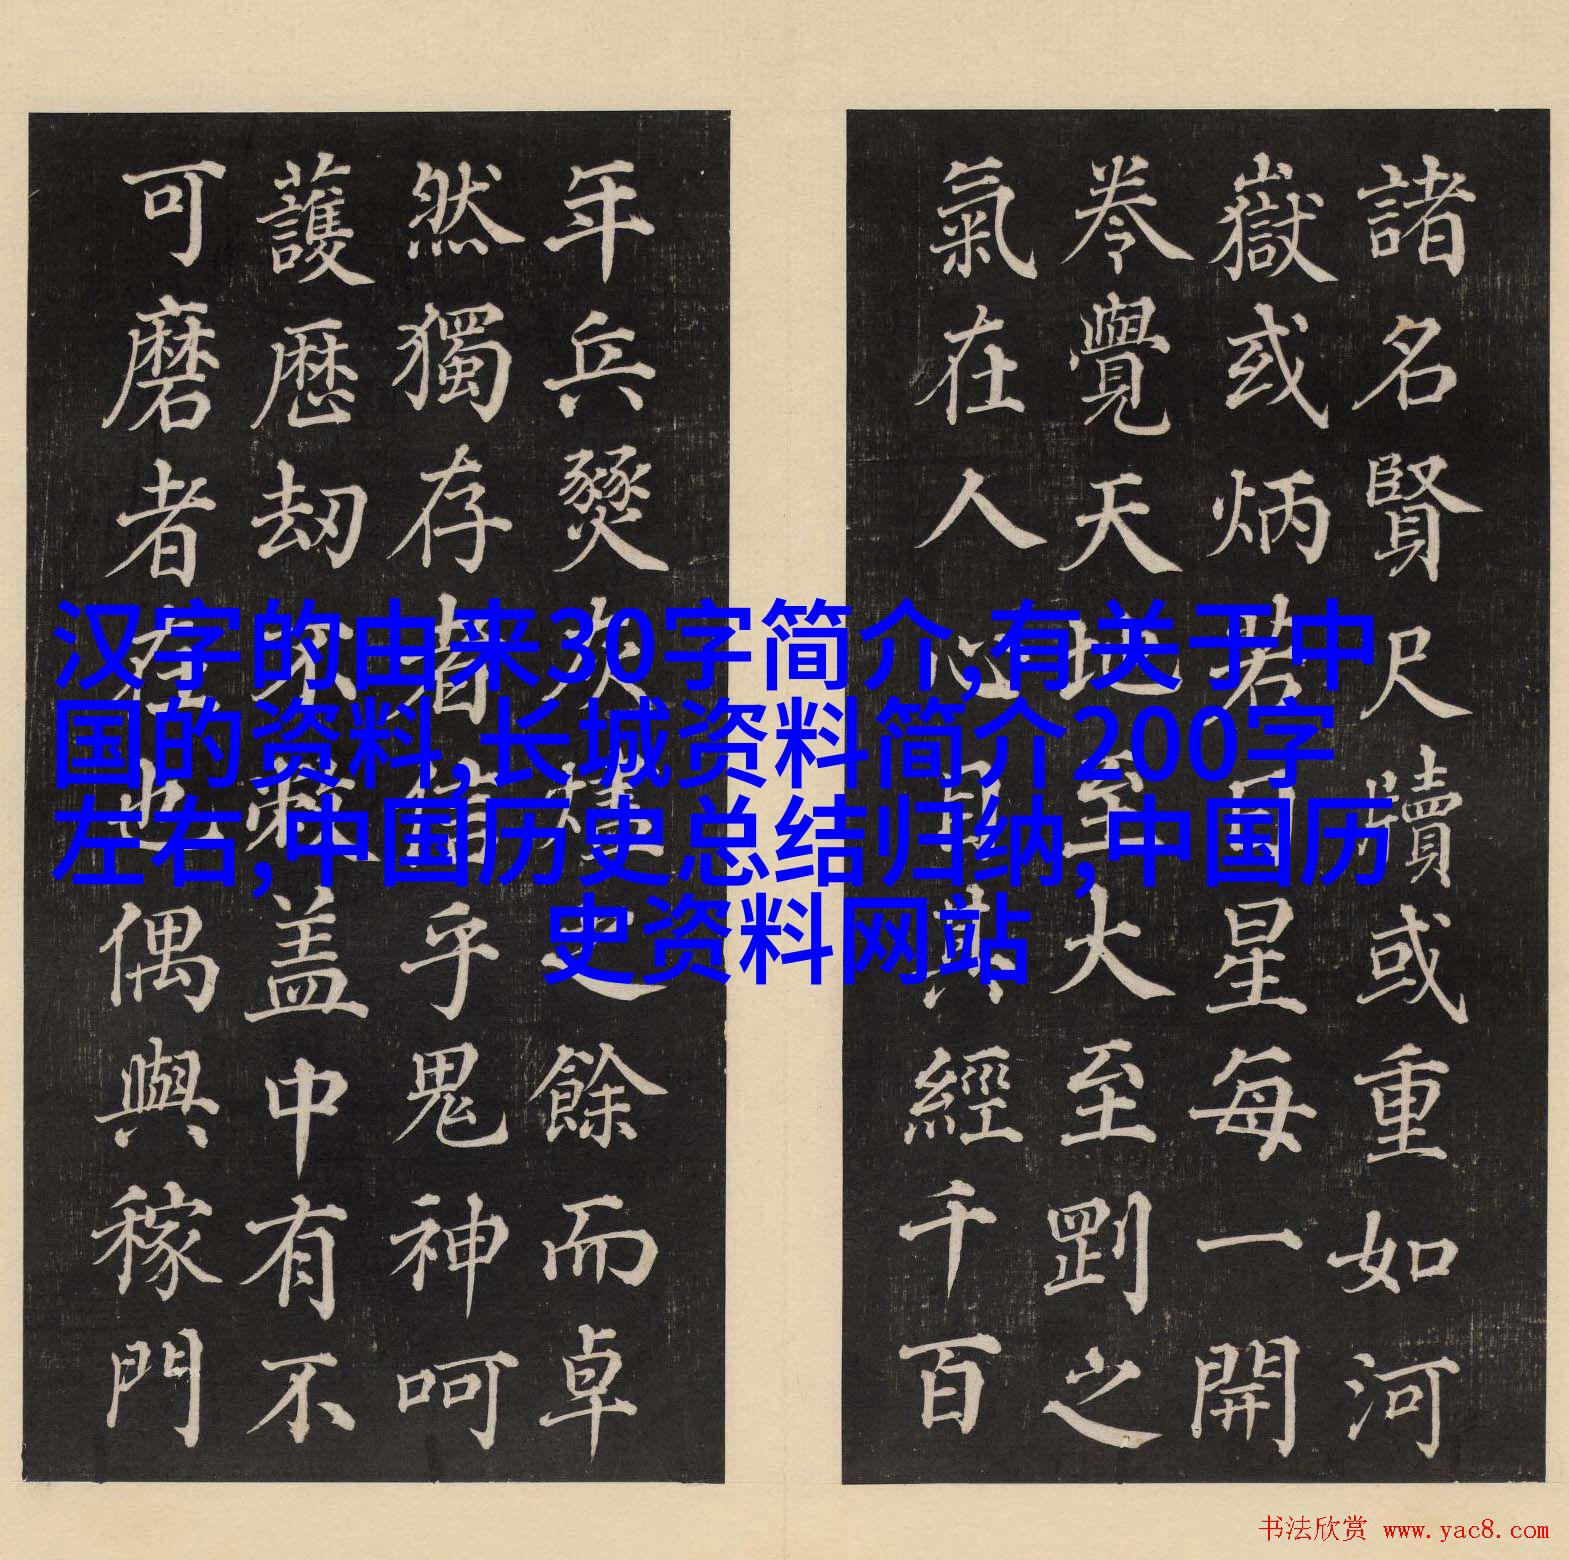 汉字的由来30字简介,有关于中
国的资料,长城资料简介200字
左右,中国历史总结归纳,中国历
史资料网站
諸名賢尺牘或重如河
嶽或炳若日星每一開
卷覺天地至大至剛之
氣在人心經千百
年兵燹之餘而卓
然獨存者乎鬼神呵
護歷劫蓋中有不
可磨者在也偶與稼門
书法欣赏 www.yac8.com